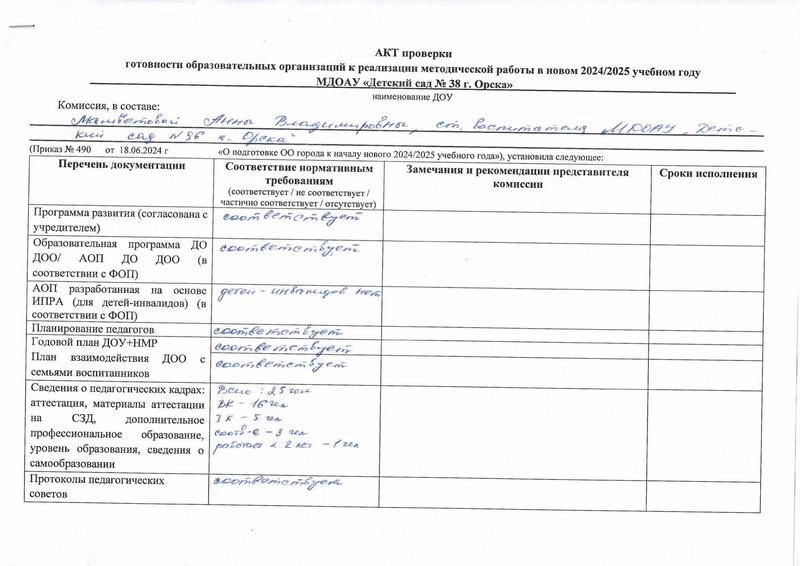 АКТ проверки
готовности образовательных организаций к реализации методической работы в новом 2024/2025 учебном году
МДОАУ «Детский сад № 38 г. Орска»
наименование ДОУ
Комиссия, в составе:
Мамбетовой Анны Владимировны, ст. воспитателя МДОАУ „Детс-
кий сад №96 г. Орска“
(Приказ № 490 от 18.06.2024 г «О подготовке ОО города к началу нового 2024/2025 учебного года»), установила следующее:
Перечень документации
Соответствие нормативным
требованиям
(соответствует / не соответствует /
частично соответствует / отсутствует)
Замечания и рекомендации представителя
комиссии
Сроки исполнения
Программа развития (согласована с
учредителем)
соответствует
Образовательная программа ДО
ДОО/ АОП ДО ДОО (в
соответствии с ФОП)
соответствует
АОП разработанная на основе
ИПРА (для детей-инвалидов) (в
соответствии с ФОП)
детей-инвалидов нет
Планирование педагогов
соответствует
Годовой план ДОУ+НМР
соответствует
План взаимодействия ДОО с
семьями воспитанников
соответствует
Сведения о педагогических кадрах:
аттестация, материалы аттестации
на СЗД, дополнительное
профессиональное образование,
уровень образования, сведения о
самообразовании
Всего : 25 чел
ВК - 16 чел
I К - 5 чел
соотв-е - 3 чел
работает < 2 лет - 1 чел
Протоколы педагогических
советов
соответствует